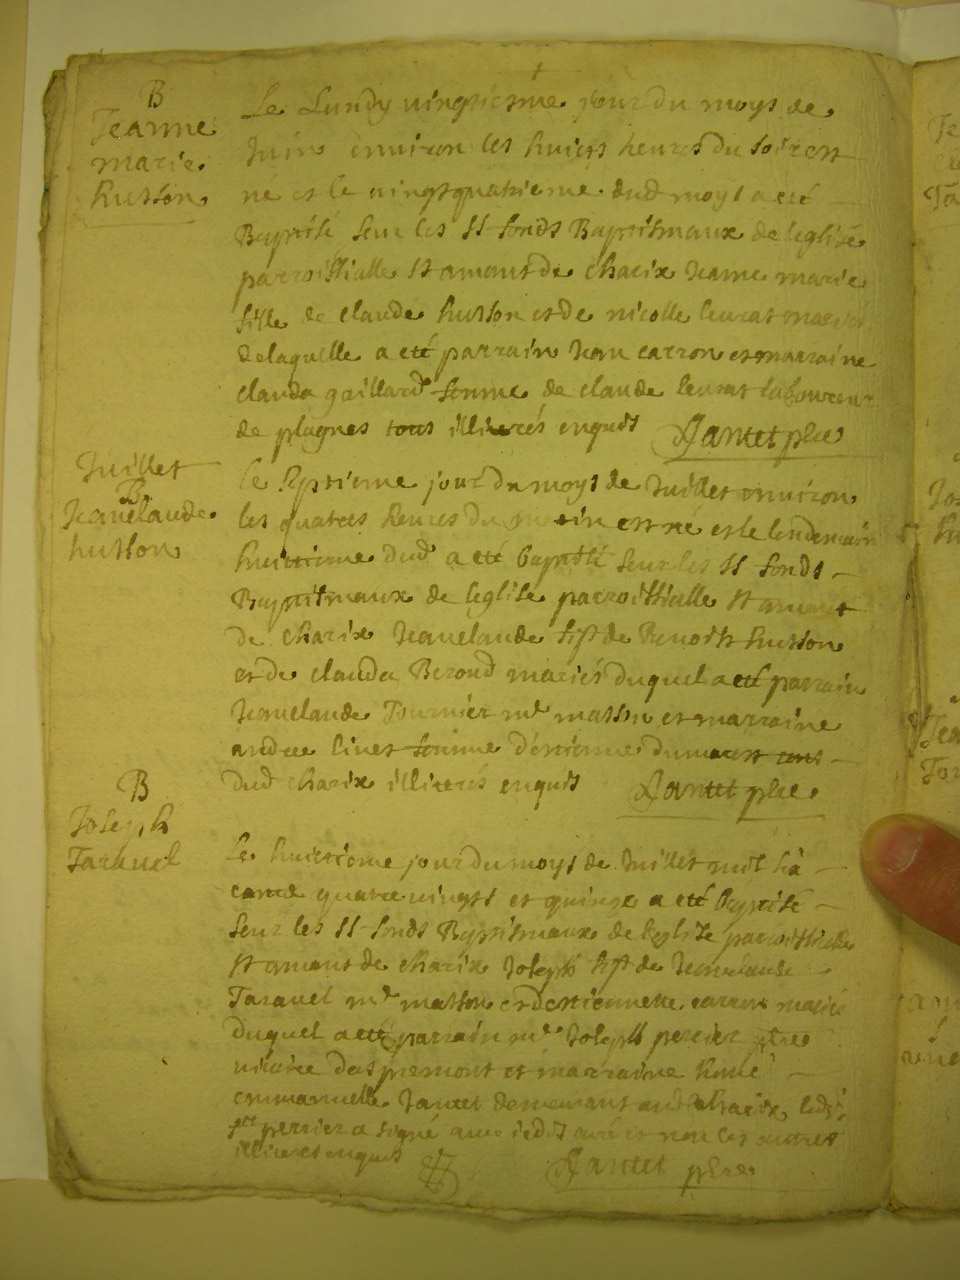 B
Jeanne
marie
husson
Le Lundy vingtiesme jour du moys de
Juin environ les huicts heures du soir est
né et le vingtquatrieme dud moys a eté
Baptisé seur les SS fonds Baptismaux de leglise
parroissialle St amant de Charix Jeanne marie
fille de claude husson et de nicolle leurat mariés
de laquelle a eté parrain Jean carron et marraine
clauda gaillard femme de claude leurat laboureur
de plagnes tous illiterés enquis Jantet pbre
Juillet
B
Jeanclaude
husson
Le Septieme jour du moys de Juillet environ
les quatres heures du matin est né et le lendemain
huittieme dud a eté baptisé seur les SS fonds
Baptismaux de leglise parroissialle St amant
de Charix Jeanclaude fils de Benoist husson
et de clauda Beroud mariés duquel a eté parrain
Jeanclaude Tournier me masson et marraine
andrea livet femme destienne dumarest tous
dud charix illiterés enquis Jantet pbre
B
Joseph
Taravel
Le huictieme jour du moys de Juillet mil six
cents quatre vingts et quinze a eté baptisé
seur les SS fonds Baptismaux de leglise parroissialle
St amant de charix Joseph fils de Jeanclaude
Taravel me masson et destiennette carron mariés
duquel a eté parrain me Joseph perrier pbre
vicaire daspremont et marraine honée
emmanuelle Jantet demeurant aud charix, ledit
sr perrier a signé avec iedit curé et non les autres
illiterés enquis Jantet pbre